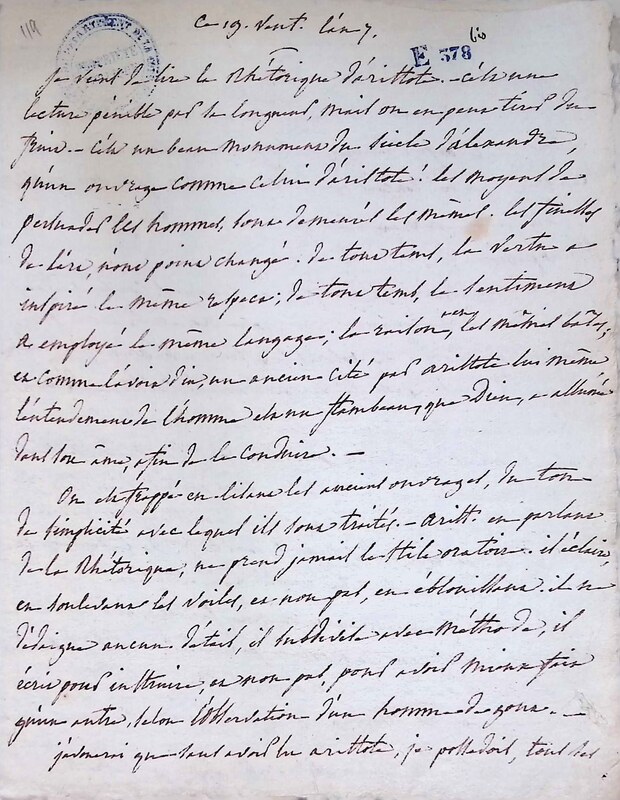 119
ce 19. vent. l'an 7.
66
E 378
je viens de lire la Rhétorique d'aristote. - c'est une
lecture pénible par sa longueur, mais on en peut tirer du
fruit. - c'est un beau monument du siècle d'alexandre,
qu'un ouvrage comme celui d'aristote! les moyens de
persuader les hommes, sont demeurés les mêmes. les finesses
de l'art, n'ont point changé. de tout tems, la vertu a
inspiré le même respect; de tout tems, le sentiment
a employé le même langage; la raison les mêmes
et comme l'avoit dit, un ancien cité par aristote lui même
l'entendement de l'homme est un flambeau, que Dieu, a allumé
dans son âme, afin de la conduire. -
On est frappé en lisant les anciens ouvrages, du ton
de simplicité avec lequel ils sont traités. - arist. en parlant
de la Rhétorique, ne prend jamais le stile oratoire. il éclaire,
en soulevant les voiles, et non pas, en éblouissant. il ne
dédaigne aucun détail, il subdivise avec méthode, il
écrit pour instruire, et non pas, pour avoir mieux fait
qu'un autre, selon l'observation d'un homme de gout. -
j'avouerai que sans avoir lu aristote, je possedois, tous ses